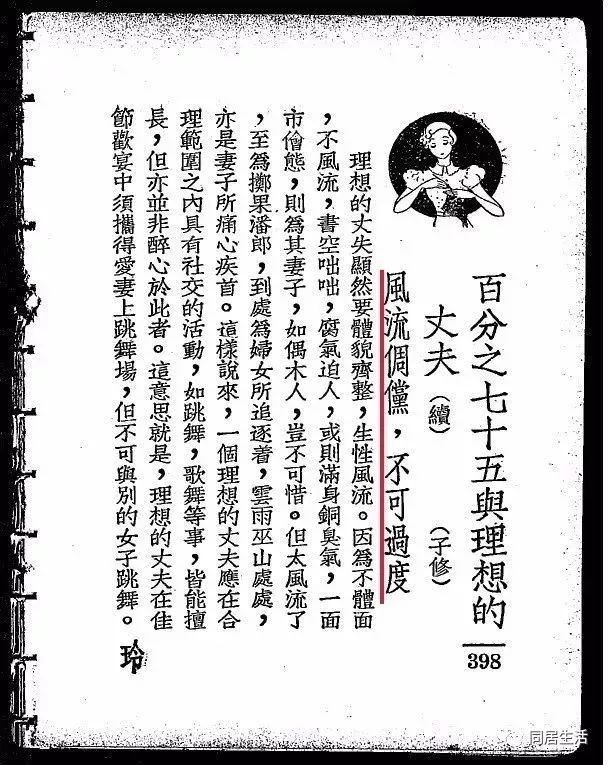 百分之七十五與理想的
丈夫（續）（子修）
風流倜儻，不可過度
理想的丈失顯然要體貌齊整，生性風流。因爲不體面
，不風流，書空咄咄，腐氣迫人，或則滿身銅臭氣，一面
市儈態，則爲其妻子，如偶木人，豈不可惜。但太風流了
，至爲擲果潘郎，到處爲婦女所追逐着，雲雨巫山處處，
亦是妻子所痛心疾首。這樣說來，一個理想的丈夫應在合
理範圍之內具有社交的活動，如跳舞，歌舞等事，皆能擅
長，但亦並非醉心於此者。這意思就是，理想的丈夫在佳
節歡宴中須攜得愛妻上跳舞場，但不可與別的女子跳舞。
398
玲
同居生活